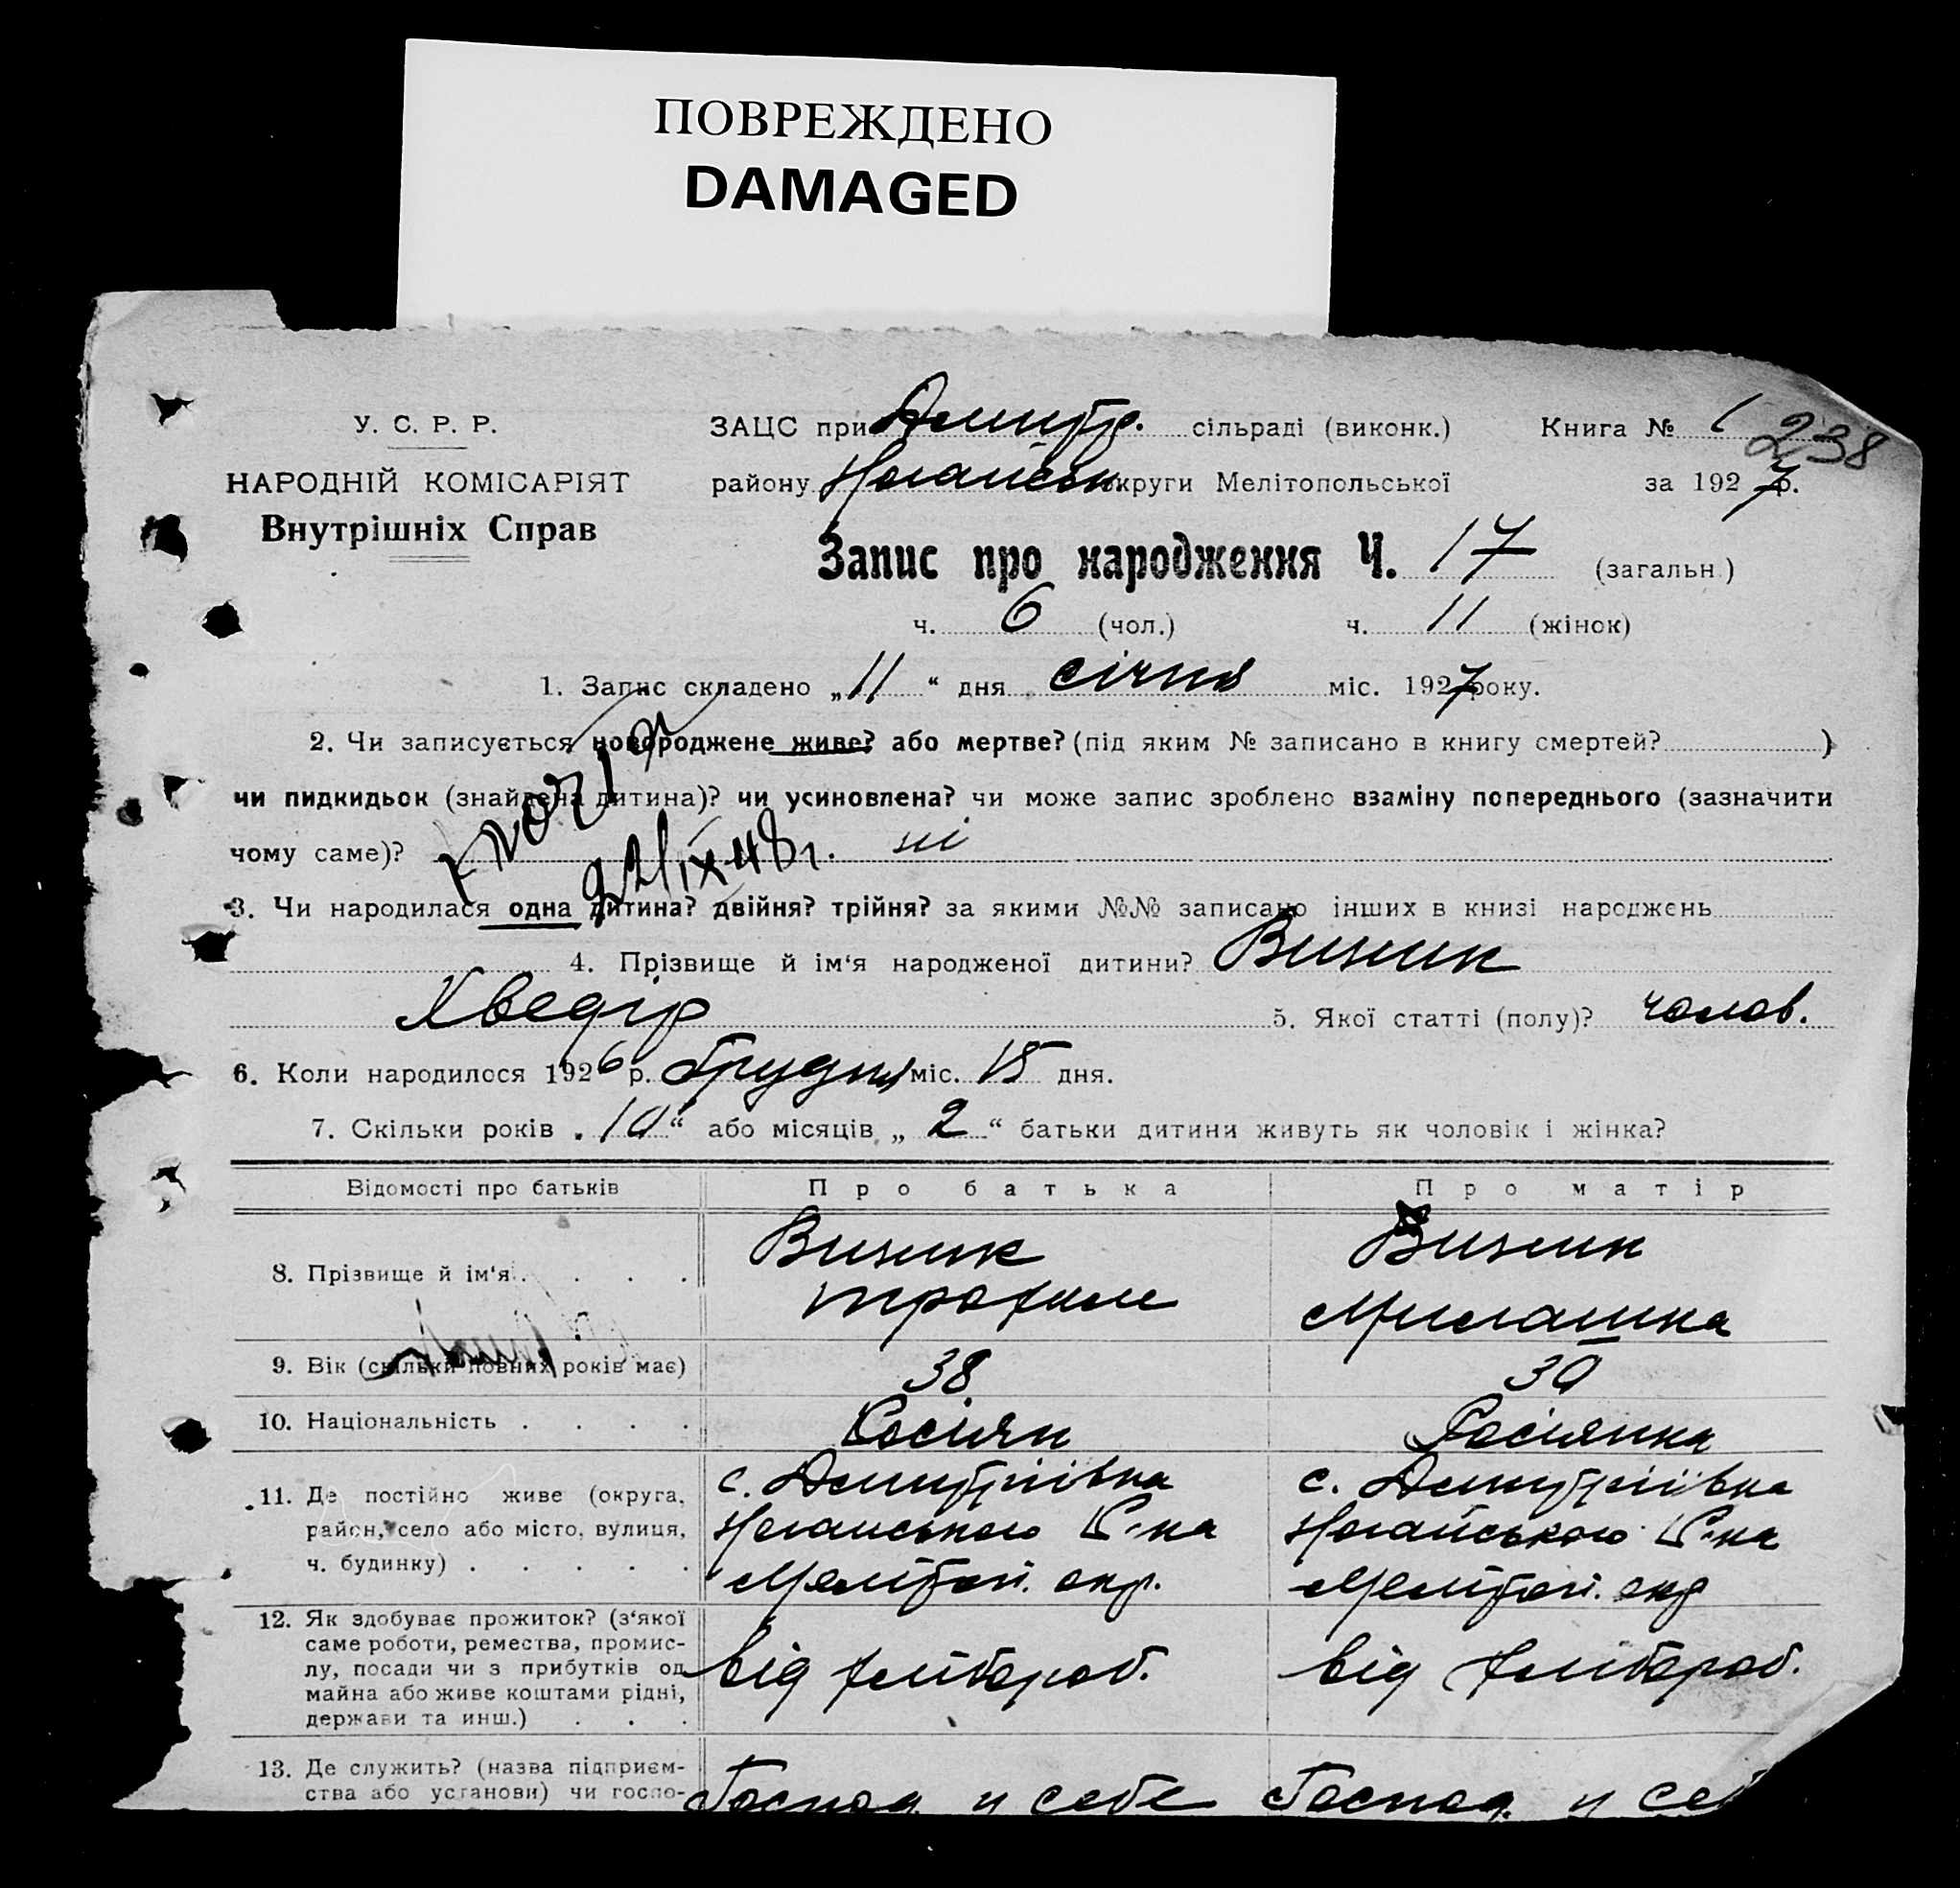 ПОВРЕЖДЕНО
DAMAGED
У. С. Р. Р.
НАРОДНІЙ КОМІСАРІЯТ
Внутрішніх Справ
ЗАЦС при Дмитр. сільраді (виконк.) Книга № 1
238
району Ногайськ округи Мелітопольської за 1927 р.
Запис про народження Ч. 17 (загальн.)
ч. 6 (чол.) ч. 11 (жінок)
1. Запис складено „11“ дня січня міс. 1927 року.
2. Чи записується новороджене живе? або мертве? (під яким № записано в книгу смертей? )
чи пидкидьок (знайдена дитина)? чи усиновлена? чи може запис зроблено взаміну попереднього (зазначити
чому саме)? ні
22/IX 48 г.
3. Чи народилася одна дитина? двійня? трійня? за якими №№ записано інших в книзі народжень
4. Прізвище й ім‘я народженої дитини? Визик
Хведір 5. Якої статті (полу)? чолов.
6. Коли народилося 1926 р. Грудня міс. 15 дня.
7. Скільки років „10“ або місяців „2“ батьки дитини живуть як чоловік і жінка?
Відомості про батьків Про батька Про матір
8. Прізвище й ім‘я . . . . Визик Визик
Трохим Милашка
9. Вік (скільки повних років має) 38 30
10. Національність . . . . Росіян Росіянка
11. Де постійно живе (округа, с. Дмитріївка с. Дмитріївка
район, село або місто, вулиця, Ногайського Р-на Ногайського Р-на
ч. будинку) . . . . . Меліտոп. окр. Меліտոп. окр
12. Як здобуває прожиток? (з‘якої
саме роботи, ремества, промис-
лу, посади чи з прибутків од від хлібороб. від хлібороб.
майна або живе коштами рідні,
держави та инш.) . . .
13. Де служить? (назва підприєм-
ства або установи) чи госпо- Господ. у себе Господ. у себ